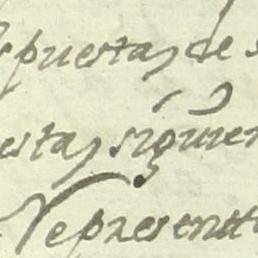 spuertas de s
estas siguien
Represent